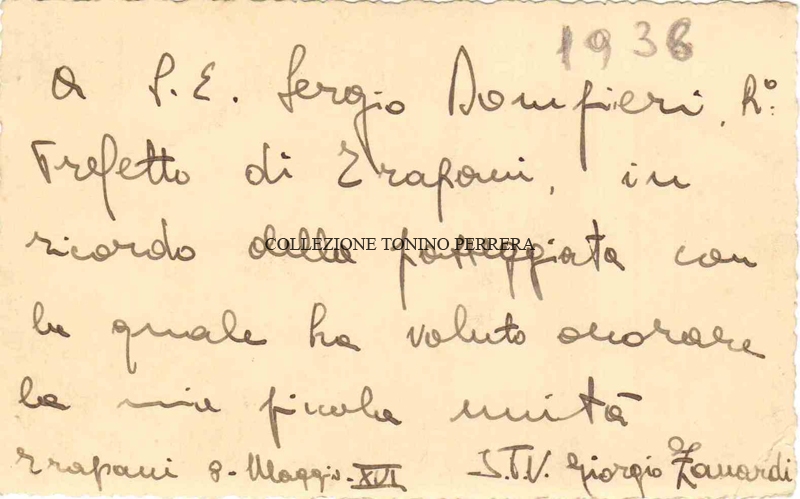 1936
A S.E. Sergio Dompieri, R°:
Prefetto di Trapani, in
ricordo della passeggiata con
COLLEZIONE TONINO PERRERA
la quale ha voluto onorare
la mia piccola unità
Trapani 8 - Maggio - XVI S.T.V. Giorgio Zanardi